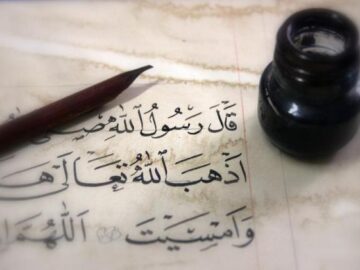 قَالَ رَسُولُ اللّٰهِ
اَذْهَبَ اللّٰهُ تَعَالٰى
وَاَمْسَيْتَ اَللّٰهُمَّ